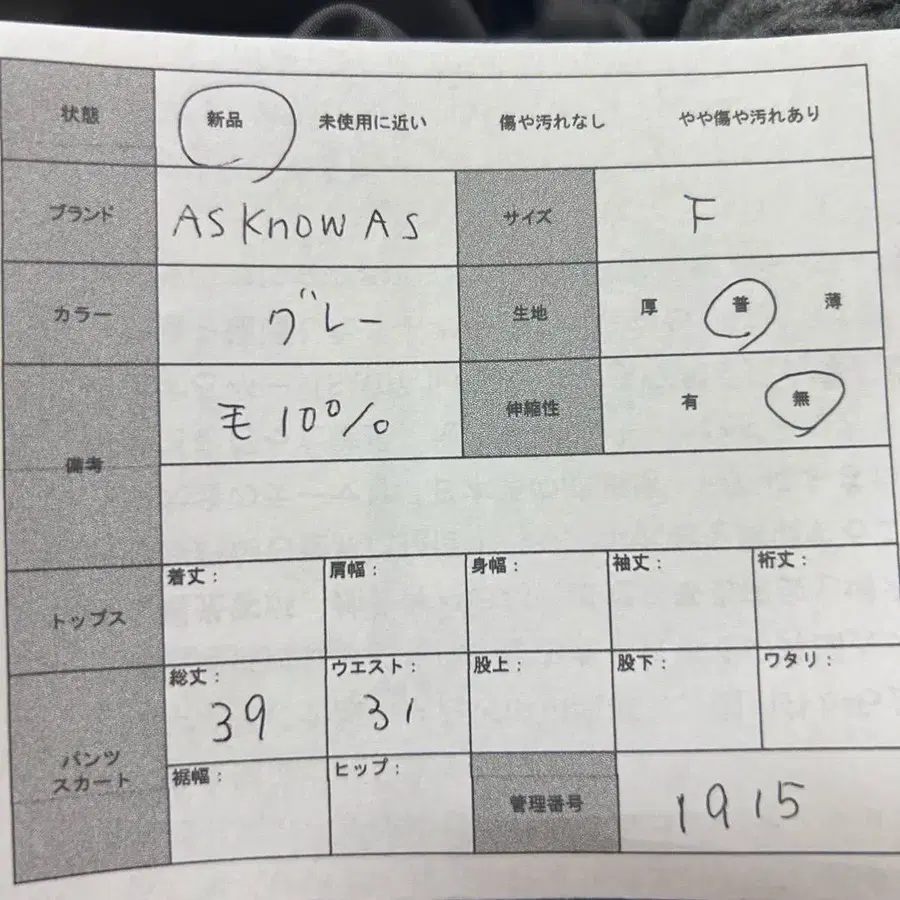 状態 新品 未使用に近い 傷や汚れなし やや傷や汚れあり
ブランド AS KnOW AS サイズ F
カラー グレー 生地 厚 普 薄
備考 毛100% 伸縮性 有 無
トップス 着丈： 肩幅： 身幅： 袖丈： 裄丈：
パンツ スカート 総丈： 39 ウエスト： 31 股上： 股下： ワタリ：
裾幅： ヒップ： 管理番号 1915